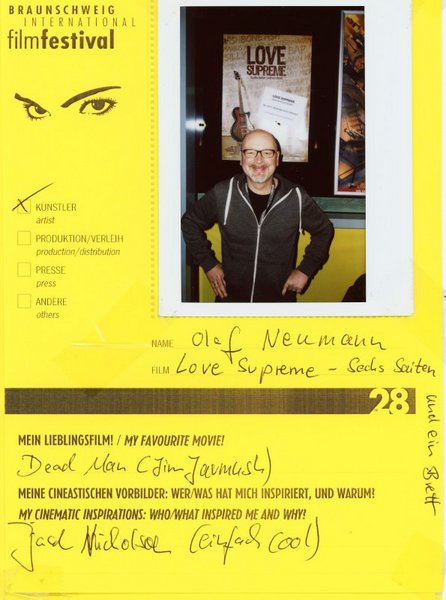 BRAUNSCHWEIG
INTERNATIONAL
filmfestival
LOVE
SUPREME
LOVE SUPREME
X KÜNSTLER
artist
PRODUKTION/VERLEIH
production/distribution
PRESSE
press
ANDERE
others
NAME Olaf Neumann
FILM Love Supreme - Sechs Saiten
und ein Brett
28
MEIN LIEBLINGSFILM! / MY FAVOURITE MOVIE!
Dead Man (Jim Jarmush)
MEINE CINEASTISCHEN VORBILDER: WER/WAS HAT MICH INSPIRIERT, UND WARUM?
MY CINEMATIC INSPIRATIONS: WHO/WHAT INSPIRED ME AND WHY?
Jack Nicholson (einfach cool)